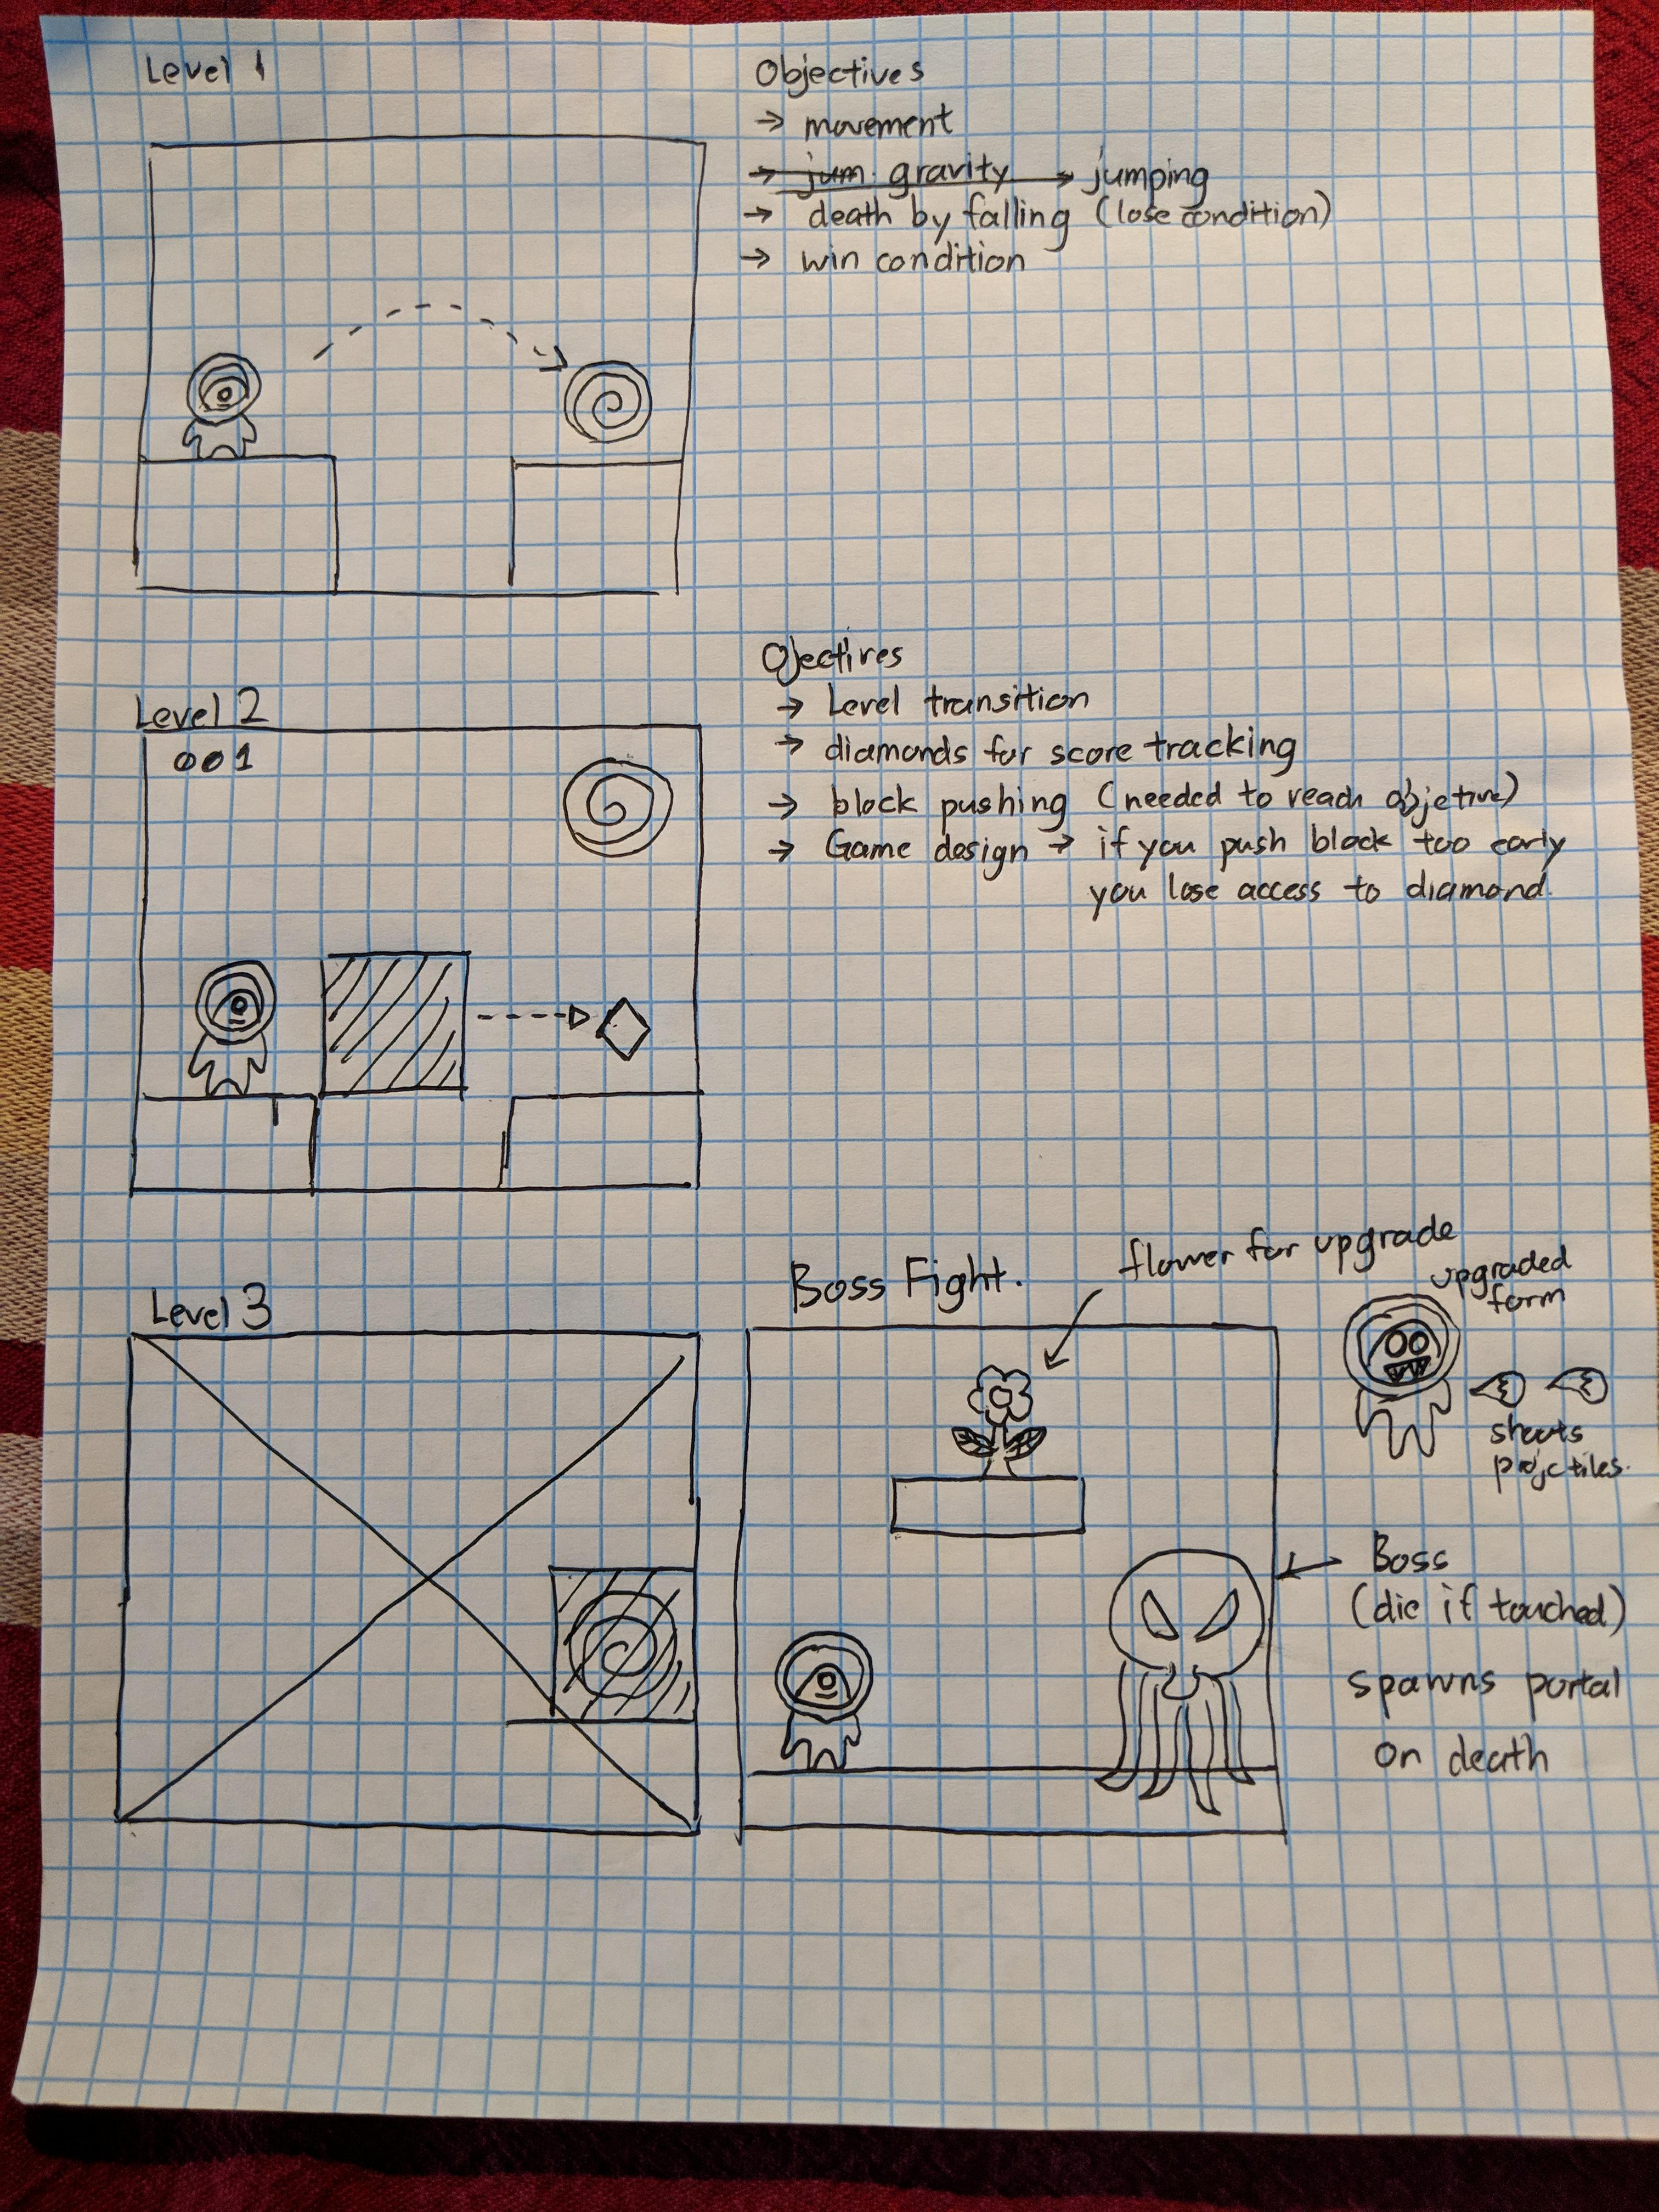 Level 1
Objectives
→ movement
→ jum. gravity → jumping
→ death by falling (lose condition)
→ win condition
Level 2
001
Ojectives
→ Level transition
→ diamonds for score tracking
→ block pushing (needed to reach objetive)
→ Game design → if you push block too early
you lose access to diamond.
Level 3
Boss Fight.
flower for upgrade
upgraded
form
shoots
projctiles.
Boss
(die if touched)
spawns portal
on death